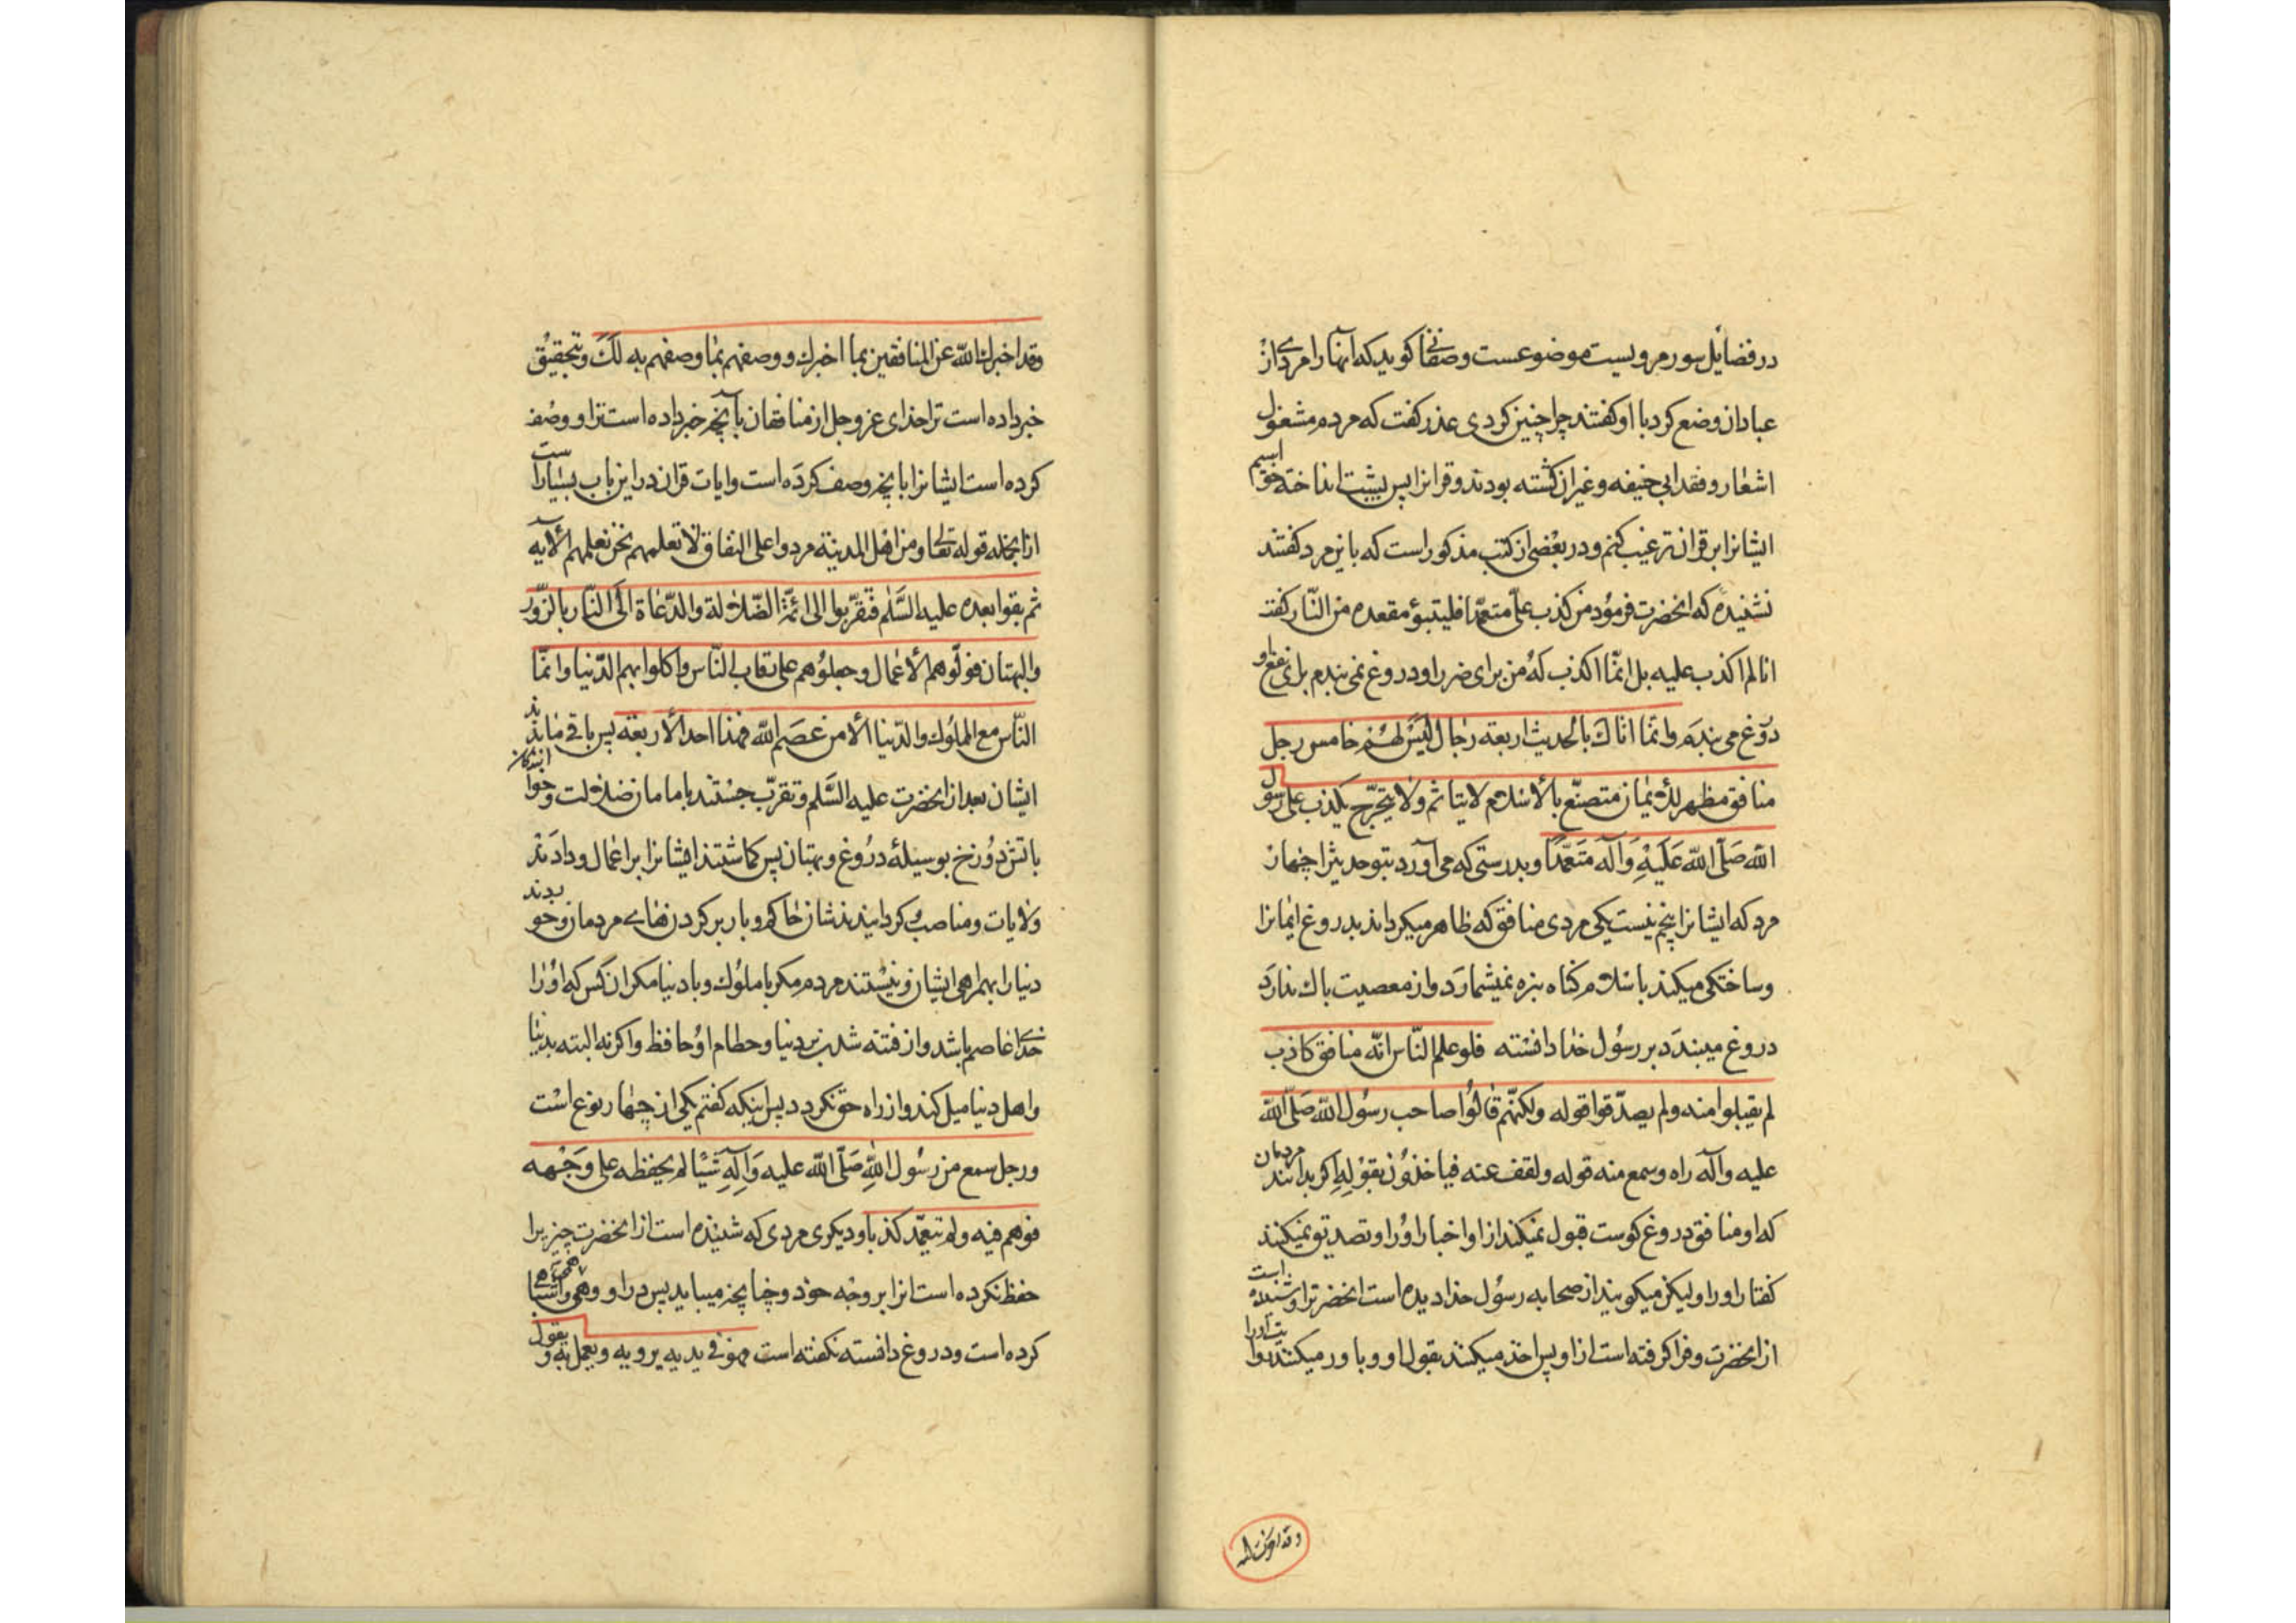 در فضایل سور مرویست موضوعست وصفانی کوید که آنها را مردے از
عبادان وضع کرد با او کفتند چرا چنین کردی عذر کفت که مردم مشغول
اشعار و فقه ابی حنیفه و غیر ان کشته بودند و قرانرا پس پشت انداخته خواستم
ایشانرا بر قران ترغیب کنم و در بعضی از کتب مذکور است که باین مرد کفتند
نشنیدهٔ که انحضرت فرمود من کذب علیّ متعمّدا فلیتبوء مقعده من النّار کفت
انا لم اکذب علیه بل انّما اکذب له من برای ضرر او دروغ نمی بندم برای نفع او
دروغ می بندم وانّما اتاك بالحدیث اربعة رجال لیس لهم خامس رجل
منافق مظهر للایمان متصنّع بالاسلام لا یتاثم ولا یتحرّج یکذب علی رسول
الله صَلّی الله عَلَیْهِ وَآله مُتَعَمّدًا وبدرستی که می آورد بتو حدیثرا چهار
مرد که ایشانرا پنجم نیست یکی مردی منافق که ظاهر میکرداند بدروغ ایمانرا
وساختکی میکند باسلام کناه بزه نمیشمارد واز معصیت باك ندارد
دروغ میبندد بر رسول خدا دانسته فلو علم النّاس انّه منافق کاذب
لم یقبلوا منه ولم یصدّقوا قوله ولکنّهم قالوا صاحب رسول الله صَلّی الله
علیه وآله راه وسمع منه قوله ولقف عنه فیاخذون بقوله اکر بدانند مردمان
که او منافق دروغ کوست قبول نمیکنند از او اخبار اورا و تصدیق نمیکنند
کفتار اورا ولیکن میکویند از صحابه رسول خدا دیده است انحضرترا وشنیده است
از انحضرت و فرا کرفته است از او پس اخذ میکنند بقول او و باور میکنند
وقد اخبرك الله
وقد اخبرك الله عن المنافقین بما اخبرك ووصفهم بما وصفهم به لك وبتحقیق
خبر داده است ترا خدای عز وجل از منافقان بآنچه خبر داده است ترا و وصف
کرده است ایشانرا بانچه وصف کرده است وایات قران در این باب بسیار است
از انجمله قوله تعالی ومن اهل المدینة مردوا علی النفاق لا تعلمهم نحن نعلمهم الآیه
ثم بقوا بعده علیه السّلم فتقرّبوا الی ائمّة الضّلالة والدّعاة الی النّار بالزّور
والبهتان فولّوهم الاعمال وجعلوهم علی رقاب النّاس واکلوا بهم الدّنیا وانّما
النّاس مع الملوك والدّنیا الا من عصم الله فهذا احد الاربعة پس باقی ماندند
ایشان بعد از انحضرت علیه السّلم و تقرّب جستند بامامان ضلالت وخوانندکان
باتش دوزخ بوسیلهٔ دروغ وبهتان پس کماشتند ایشانرا بر اعمال ودادند
ولایات ومناصب وکردانیدندشان حاکم وبار بر کردنهاے مردمان وخوردند
دنیا را بهمراهی ایشان ونیستند مردم مکر با ملوك وبا دنیا مکر ان کس که اورا
خداے عاصم باشد واز فتنه شدن بر دنیا وحطام او حافظ واکرنه البته بدنیا
واهل دنیا میل کند واز راه حق نکردد پس اینکه کفتم یکی از چهار نوع است
ورجل سمع من رسول الله صَلّی الله علیه وَآلِهِ شیئا لم یحفظه علی وجهه
فوهم فیه ولم یتعمّد کذبا ودیکری مردی که شنیده است از انحضرت چیزیرا
حفظ نکرده است انرا بر وجه خود وچنانچه میباید پس در او وهمی واشتباهی
کرده است ودروغ دانسته نکفته است فهو فی یدیه یرویه ویعمل به ویقول